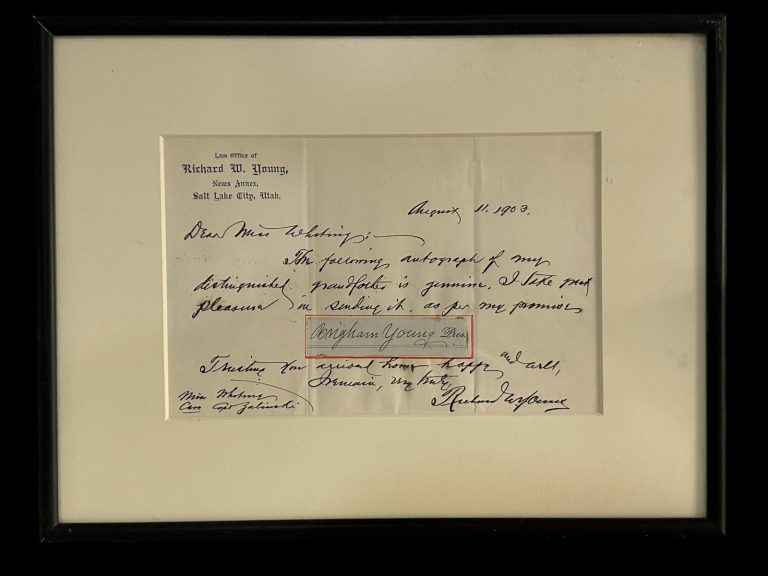 Law Office of
Richard W. Young,
News Annex,
Salt Lake City, Utah.
August 11. 1903.
Dear Miss Whiting:—
The following autograph of my
distinguished grandfather is genuine. I take great
pleasure in sending it, as per my promise
Brigham Young Pres.
Trusting you arrived home happy and well,
I remain, very truly,
Richard W. Young
Miss Whiting
Care Capt Zalinski